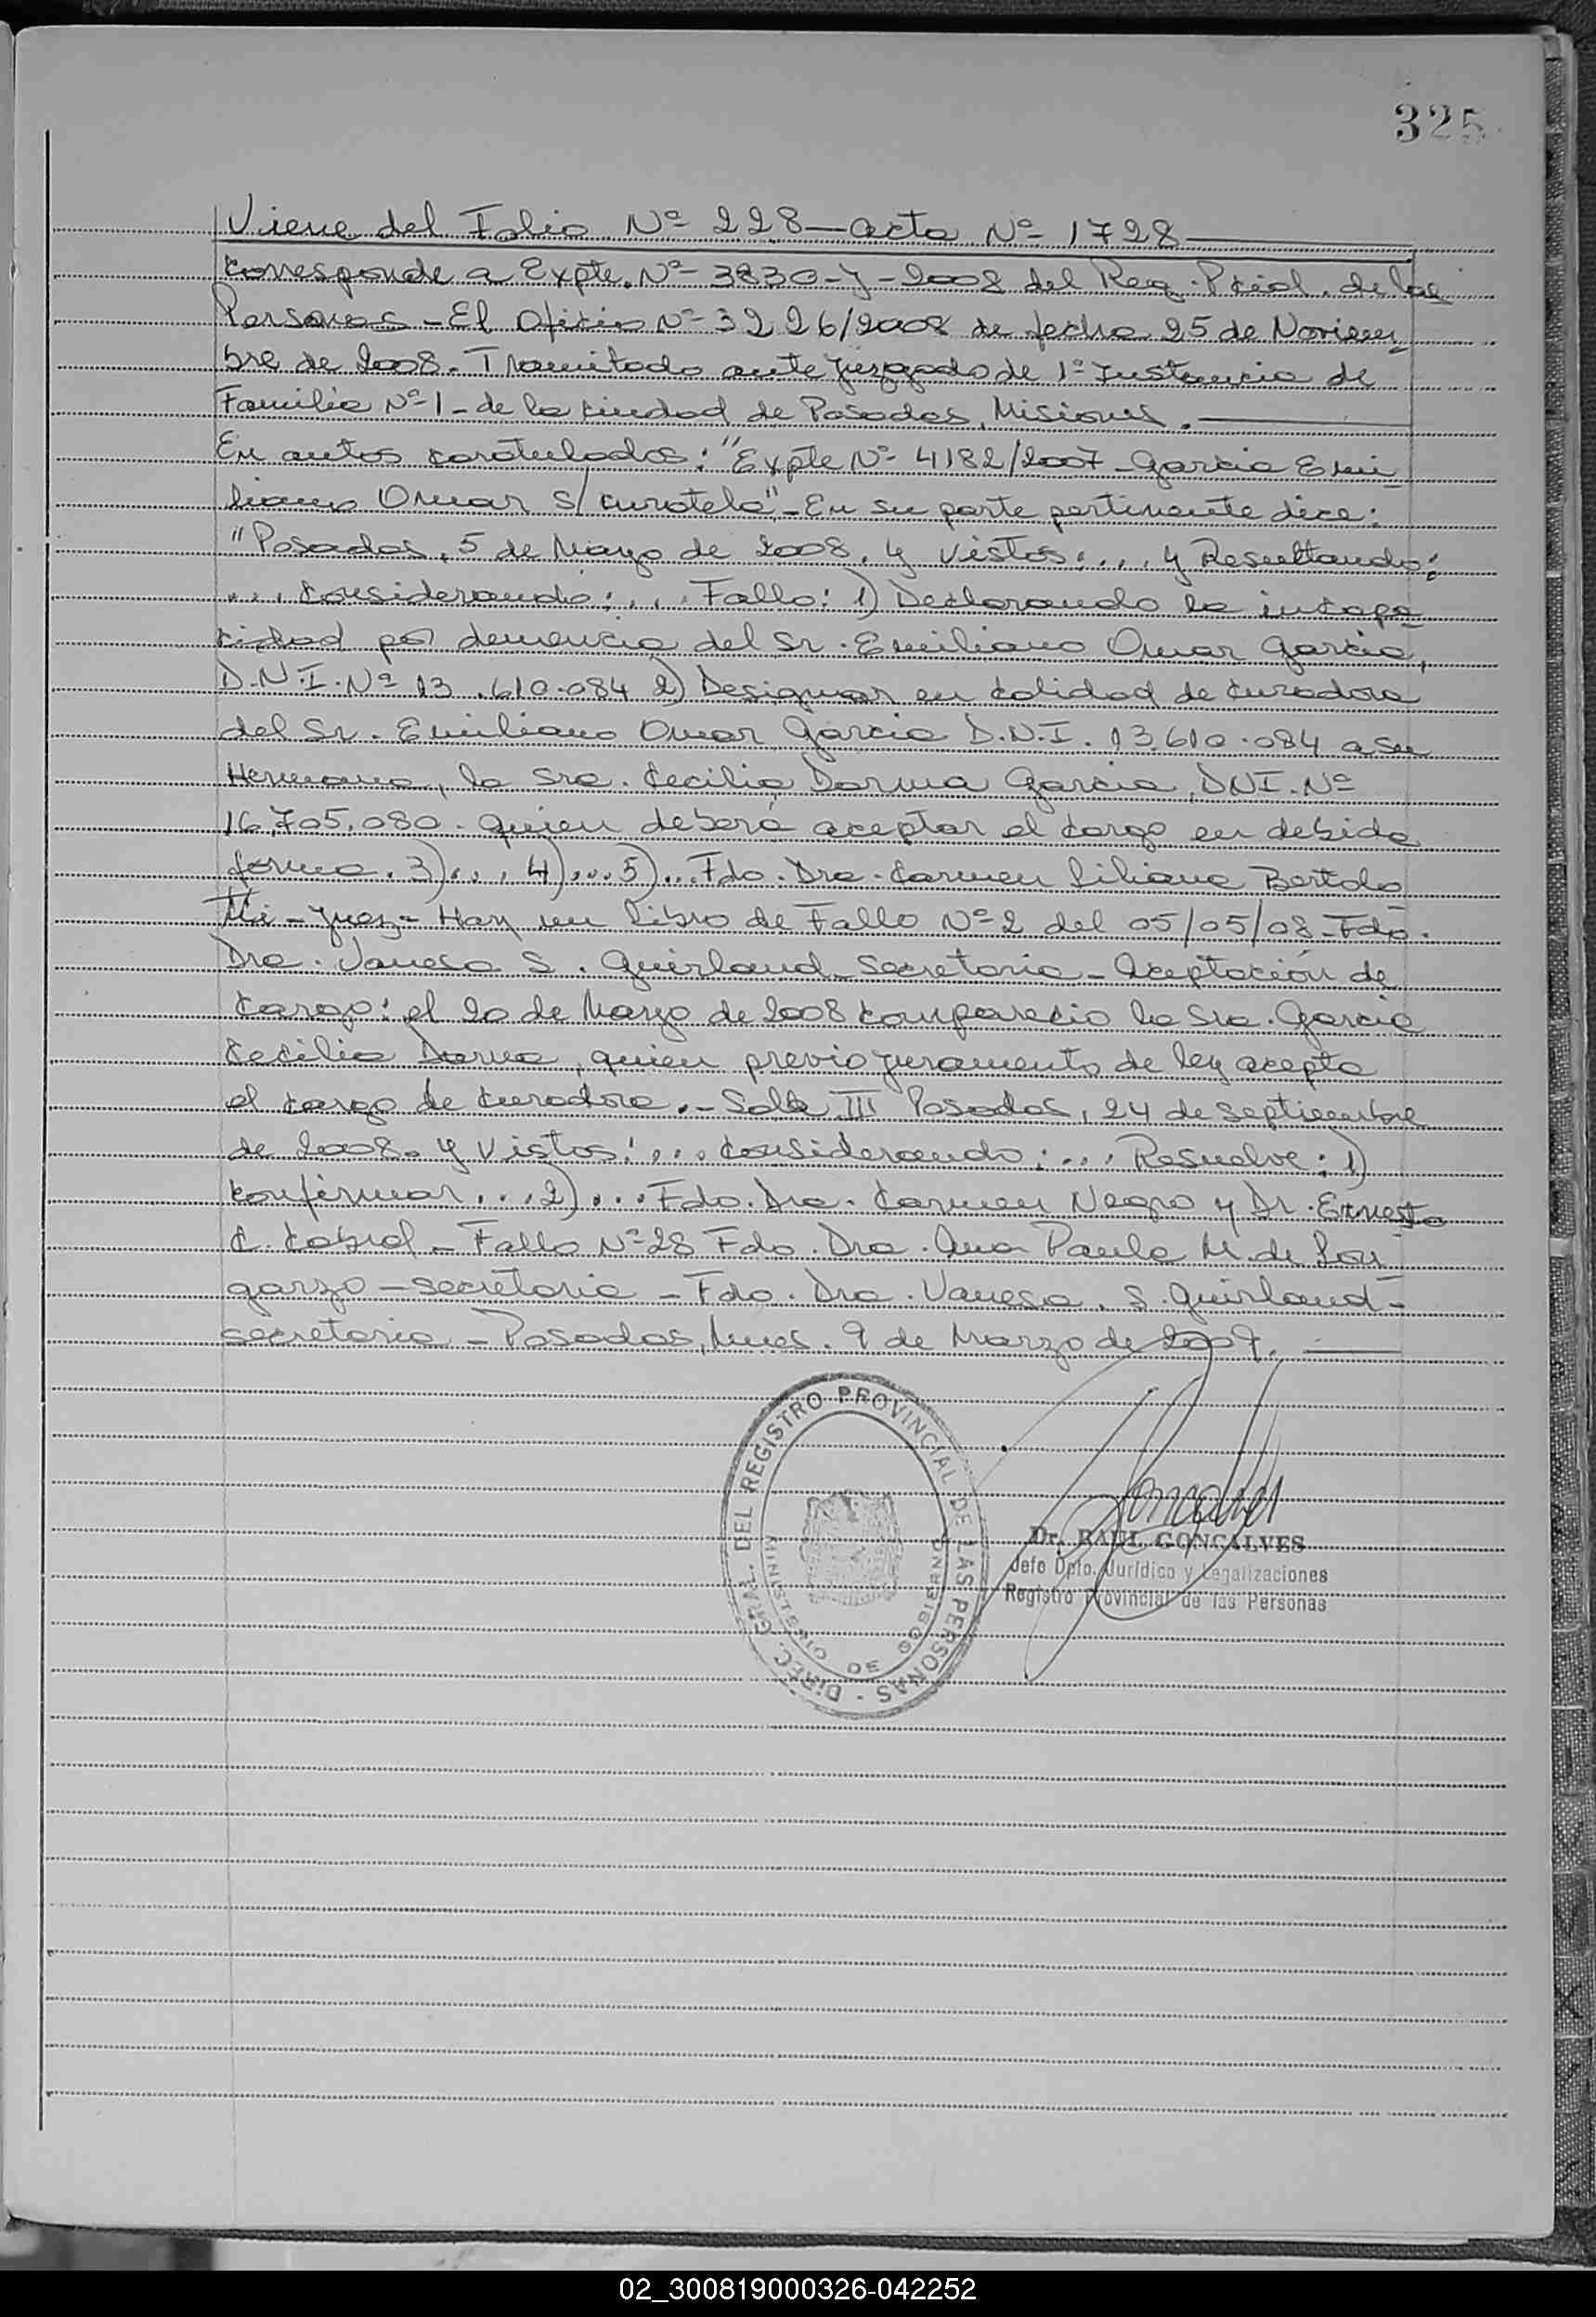 325
Viene del Folio Nº 228 — acta Nº 1728 —
Corresponde a Expte. Nº 3830-J-2008 del Reg. Pcial. de las
Personas - El Oficio Nº 3226/2008 de fecha 25 de Noviem
bre de 2008. Tramitado ante Juzgado de 1º Instancia de
Familia Nº 1 - de la ciudad de Posadas, Misiones. —
En autos caratulados: "Expte Nº 4182/2007 - Garcia Emi
liano Omar s/ curatela" - En su parte pertinente dice:
"Posadas, 5 de Mayo de 2008. y vistos: ... y Resultando:
... Considerando: ... Fallo: 1) Declarando la incapa
cidad por demencia del Sr. Emiliano Omar Garcia,
D.N.I. Nº 13.610.084 2) Designar en calidad de curadora
del Sr. Emiliano Omar Garcia D.N.I. 13.610.084 a su
Hermana, la Sra. Cecilia Dorma Garcia, DNI. Nº
16.705.080. quien deberá aceptar el cargo en debida
forma. 3) ... 4) ... 5) ... Fdo. Dra. Carmen Liliana Bertolo
tti - Juez - Hay un Libro de Fallo Nº 2 del 05/05/08 - Fdo.
Dra. Vanesa S. Guirland - Secretaria - Aceptación de
Cargo: el 20 de Mayo de 2008 compareció la Sra. Garcia
Cecilia Dorma, quien previo juramento de ley acepta
el cargo de curadora. - Sala III Posadas, 24 de septiembre
de 2008. y Vistos: ... Considerando: ... Resuelve: 1)
Confirmar ... 2) ... Fdo. Dra. Carmen Negro y Dr. Ernesto
C. Cabral - Fallo Nº 28 Fdo. Dra. Ana Paula M. de Lon
garzo - secretaria - Fdo. Dra. Vanesa. S. Guirland -
secretaria - Posadas, Mnes. 9 de Marzo de 2009. —
DIREC. GRAL. DEL REGISTRO PROVINCIAL DE LAS PERSONAS -
MINISTERIO DE GOBIERNO
Dr. RAUL GONCALVES
Jefe Dpto. Jurídico y Legalizaciones
Registro Provincial de las Personas
02_300819000326-042252